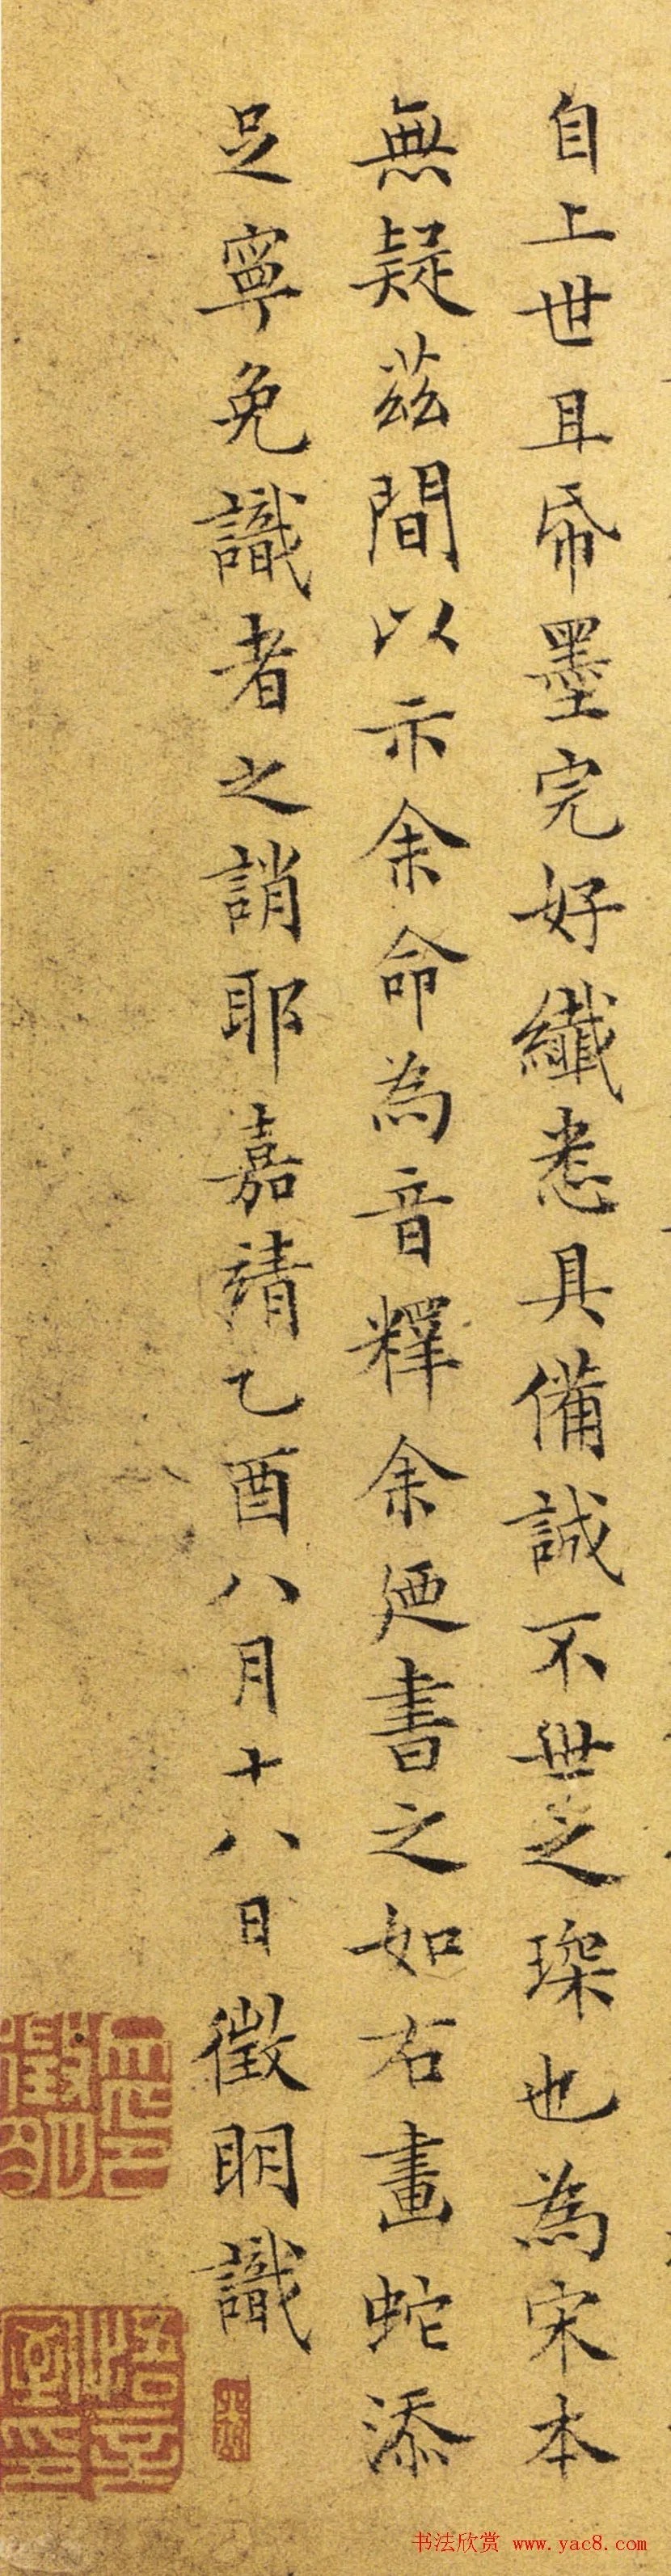 自上世且帋墨完好纎悉具備誠不世之琛也為宋本
無疑茲間以示余命為音釋余廼書之如右畫蛇添
足寧免識者之誚耶嘉靖乙酉八月十八日徵明識
书法欣赏 www.yac8.com